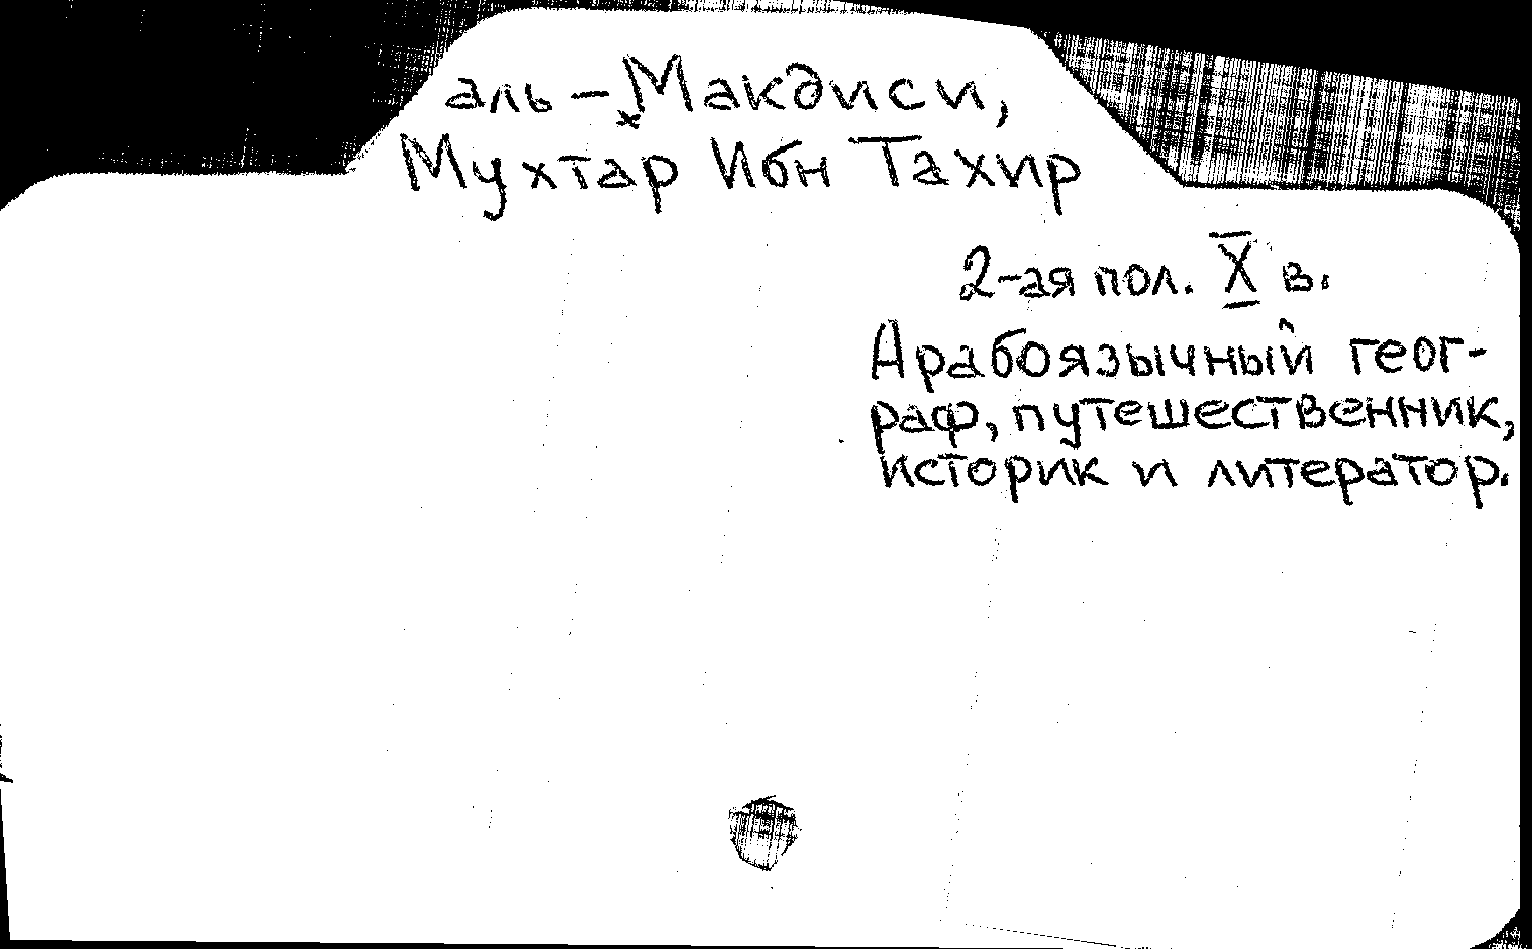 аль-Макдиси,
Мухтар Ибн Тахир
2-ая пол. X в.
Арабоязычный геог-
раф, путешественник,
историк и литератор.